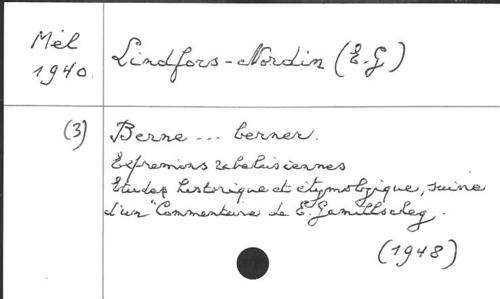 Mél
1940.
Lindfors-Nordin (E.G)
(3)
Berne ... berner.
Expressions rabelaisiennes
Etude historique et étymologique, suivie
d'un "Commentaire de E. Gamillscheg.
(1948)